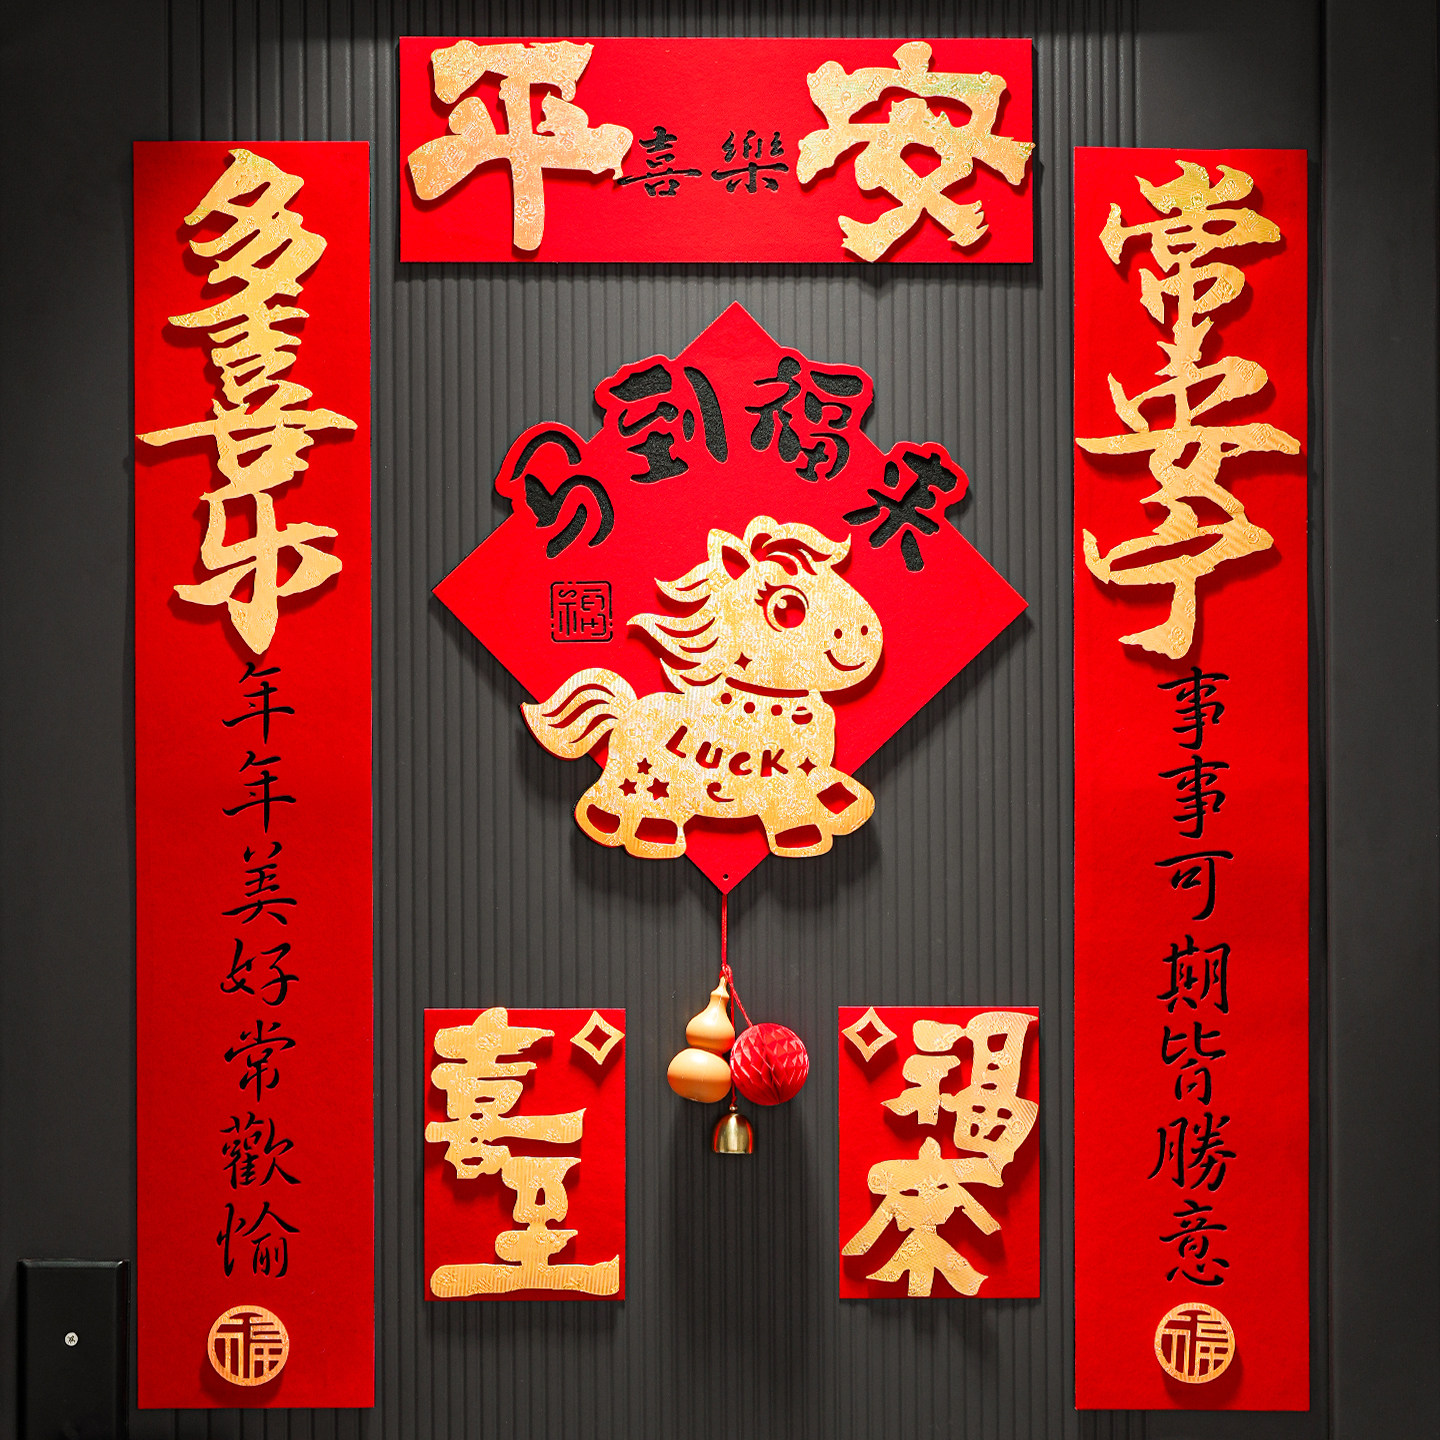 平安
喜樂
多喜乐
年年美好常歡愉
福
马到福来
福
LUCK
喜至
福来
常安宁
事事可期皆勝意
福